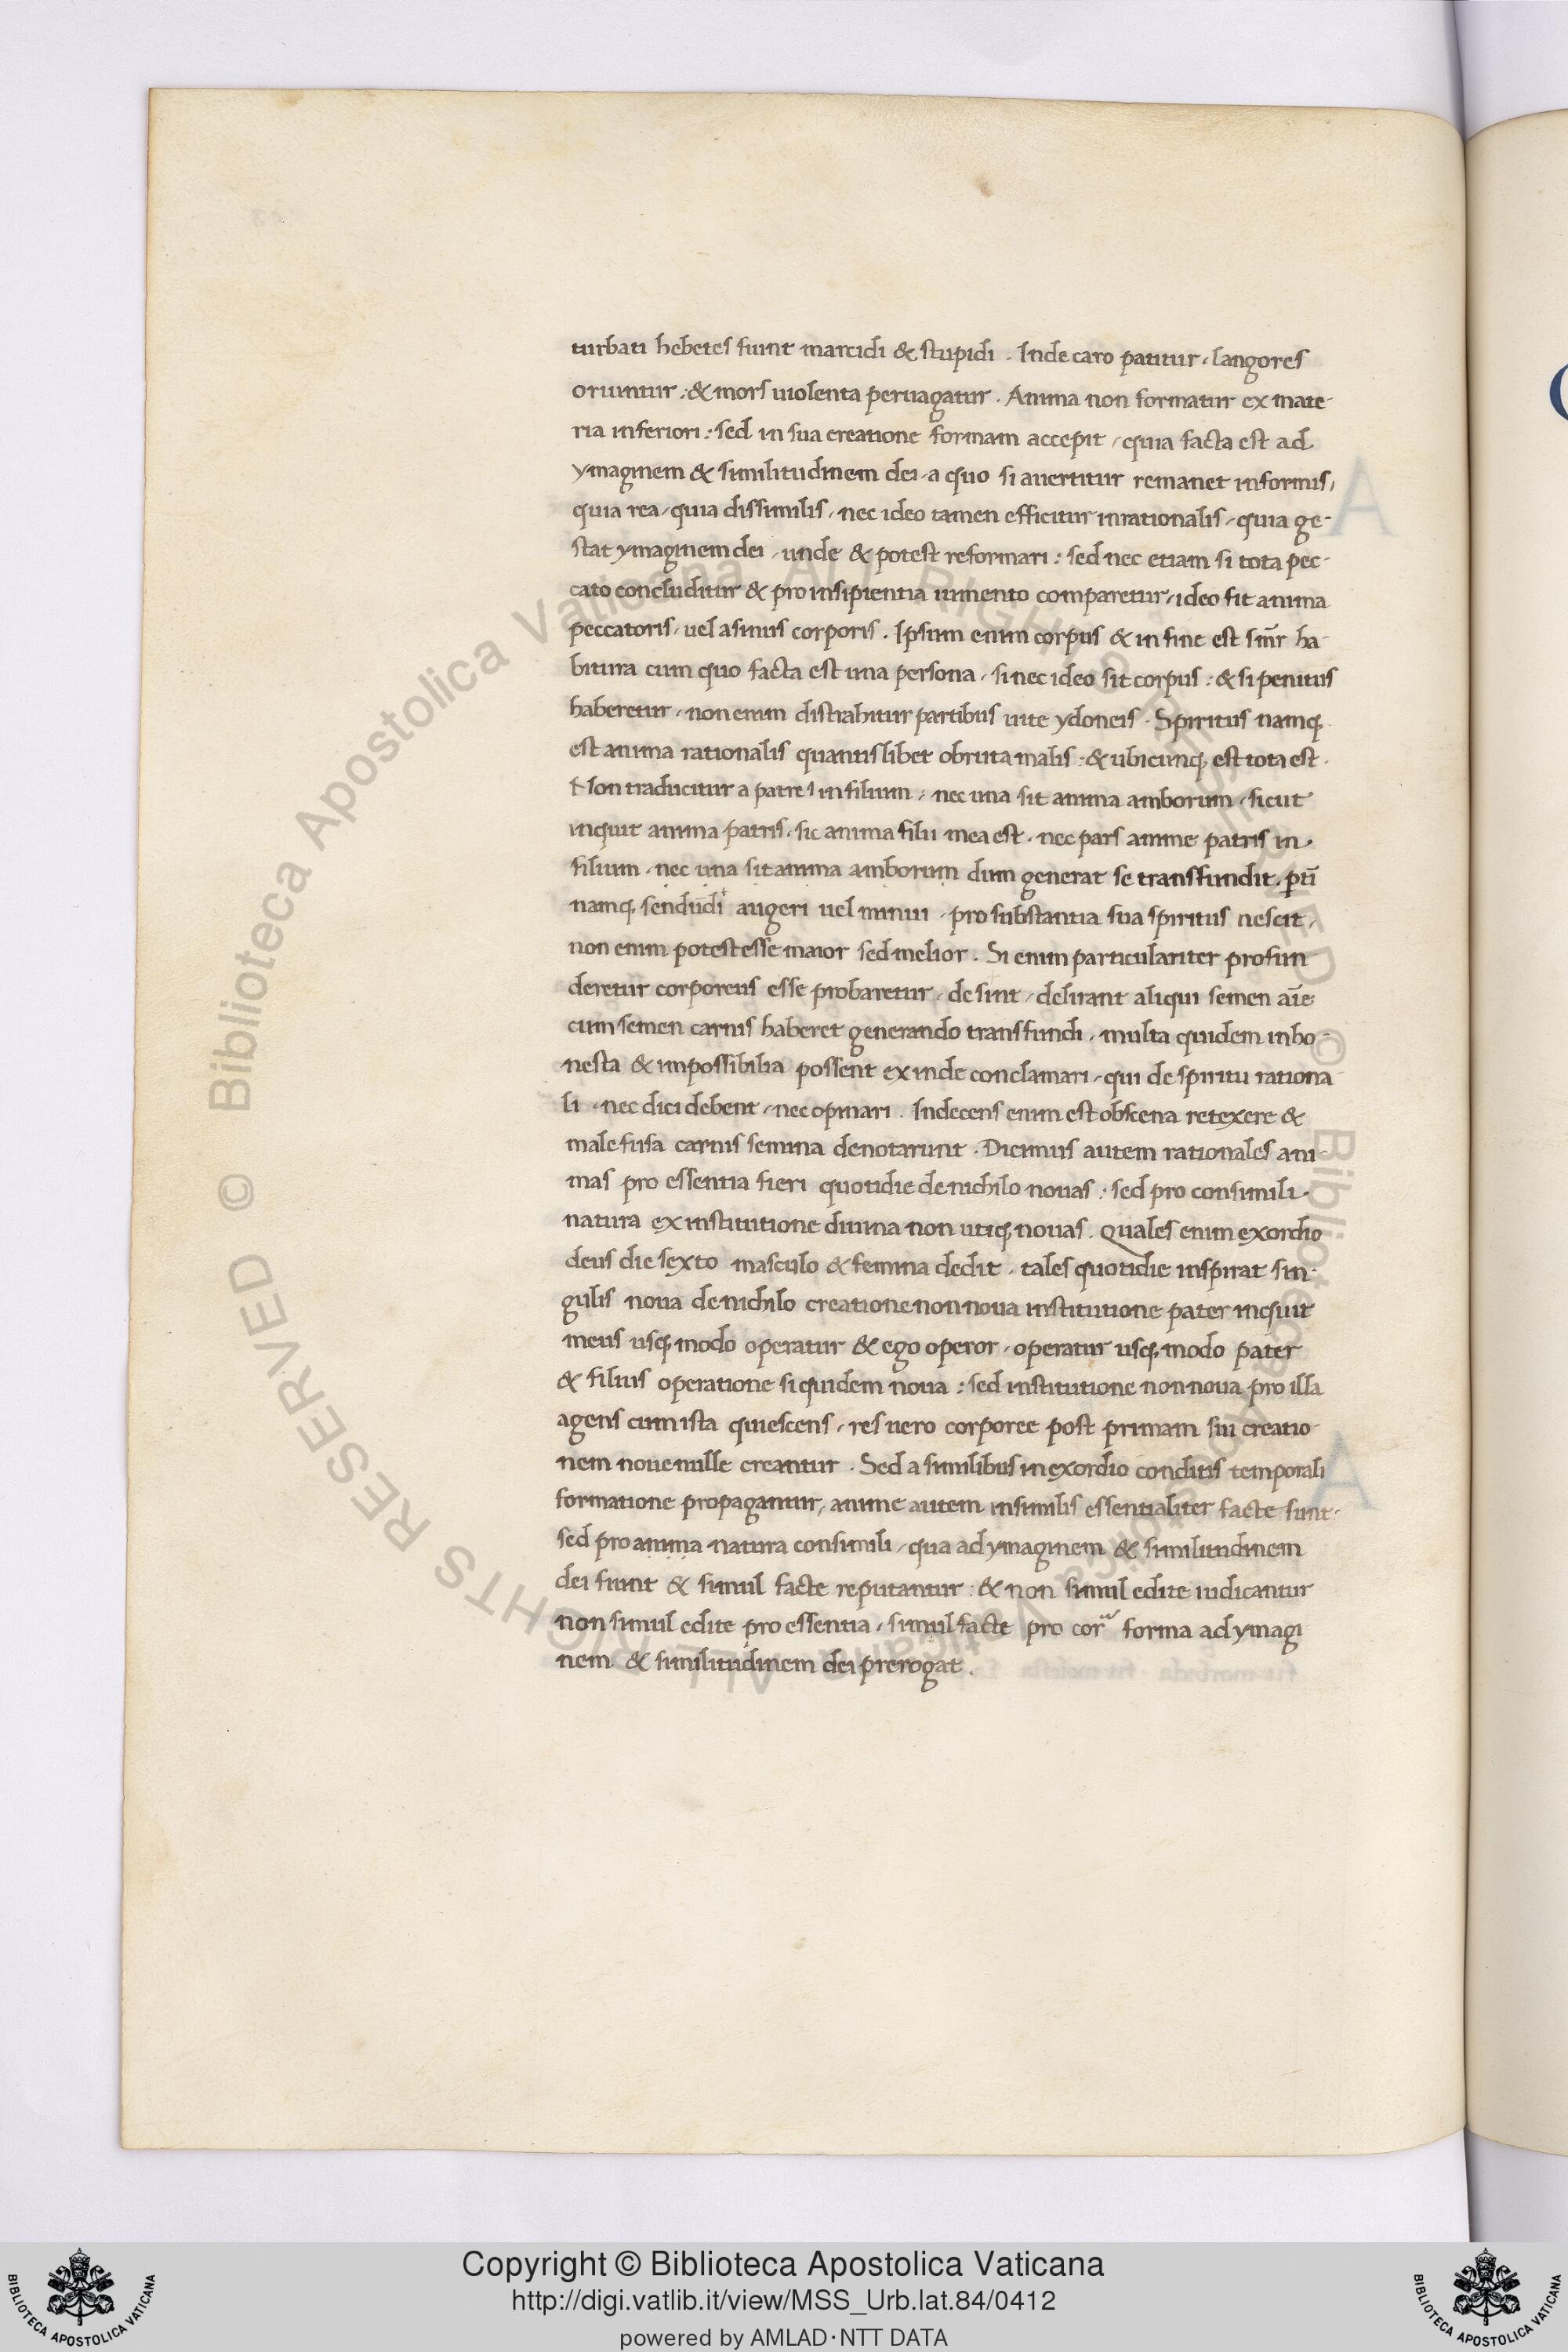 turbati hebetes fiunt marcidi & stupidi . Inde caro patitur , langores
oriuntur : & mors uiolenta peruagatur . Anima non formatur ex mate-
ria inferiori : sed in sua creatione formam accepit , quia facta est ad
ymaginem & similitudinem dei , a quo si auertitur remanet informis ,
quia rea , quia dissimilis , nec ideo tamen efficitur inrationalis , quia ge-
stat ymaginem dei , unde & potest reformari : sed nec etiam si tota pec-
cato concluditur & pro insipientia iumento comparetur , ideo fit anima
peccatoris , uel asinus corporis . Ipsum enim corpus & in fine est sm̄r ha-
bitura cum quo facta est una persona , si nec ideo sit corpus : & si penitus
haberetur , non enim distrahitur partibus uite ydoneis . Spiritus namq;
est anima rationalis quantislibet obruta malis : & ubicunq; est tota est .
Non traducitur a patre in filium , nec una sit anima amborum , sicut
inquit anima patris , sic anima filii mea est , nec pars anime patris in
filium , nec una sit anima amborum dum generat se transfundit .
namq; augeri uel minui , pro substantia sua spiritus nescit ,
non enim potest esse maior sed melior . Si enim particulariter profun
deretur corporeus esse probaretur , desint , delirant aliqui semen aīe
cum semen carnis haberet generando transfundi , multa quidem inho-
nesta & impossibilia possent exinde conclamari , qui de spiritu rationa
li , nec dici debent , nec opinari . Indecens enim est obscena retexere &
male fusa carnis semina denotarunt . Dicimus autem rationales ani-
mas pro essentia fieri quotidie de nichilo nouas : sed pro consimili
natura ex institutione diuina non utiq; nouas . Quales enim exordio
deus die sexto masculo & femina dedit , tales quotidie inspirat sin-
gulis noua de nichilo creatione non noua institutione pater inquit
meus usq; modo operatur & ego operor , operatur usq; modo pater
& filius operatione siquidem noua : sed institutione non noua pro illa
agens cum ista quiescens , res uero corporee post primam sui creatio
nem noue nulle creantur . Sed a similibus in exordio conditis temporali
formatione propagantur , anime autem insimilis essentialiter facte sunt .
sed pro anima natura consimili , qua ad ymaginem & similitudinem
dei fiunt & simul facte reputantur : & non simul edite iudicantur
non simul edite pro essentia , simul facte pro forma ad ymagi
nem & similitudinem dei prerogat .
© Biblioteca Apostolica Vaticana ALL RIGHTS RESERVED © Biblioteca Apostolica Vaticana ALL RIGHTS RESERVED
Copyright © Biblioteca Apostolica Vaticana
http://digi.vatlib.it/view/MSS_Urb.lat.84/0412
powered by AMLAD·NTT DATA
BIBLIOTECA APOSTOLICA VATICANA
BIBLIOTECA APOSTOLICA VATICANA